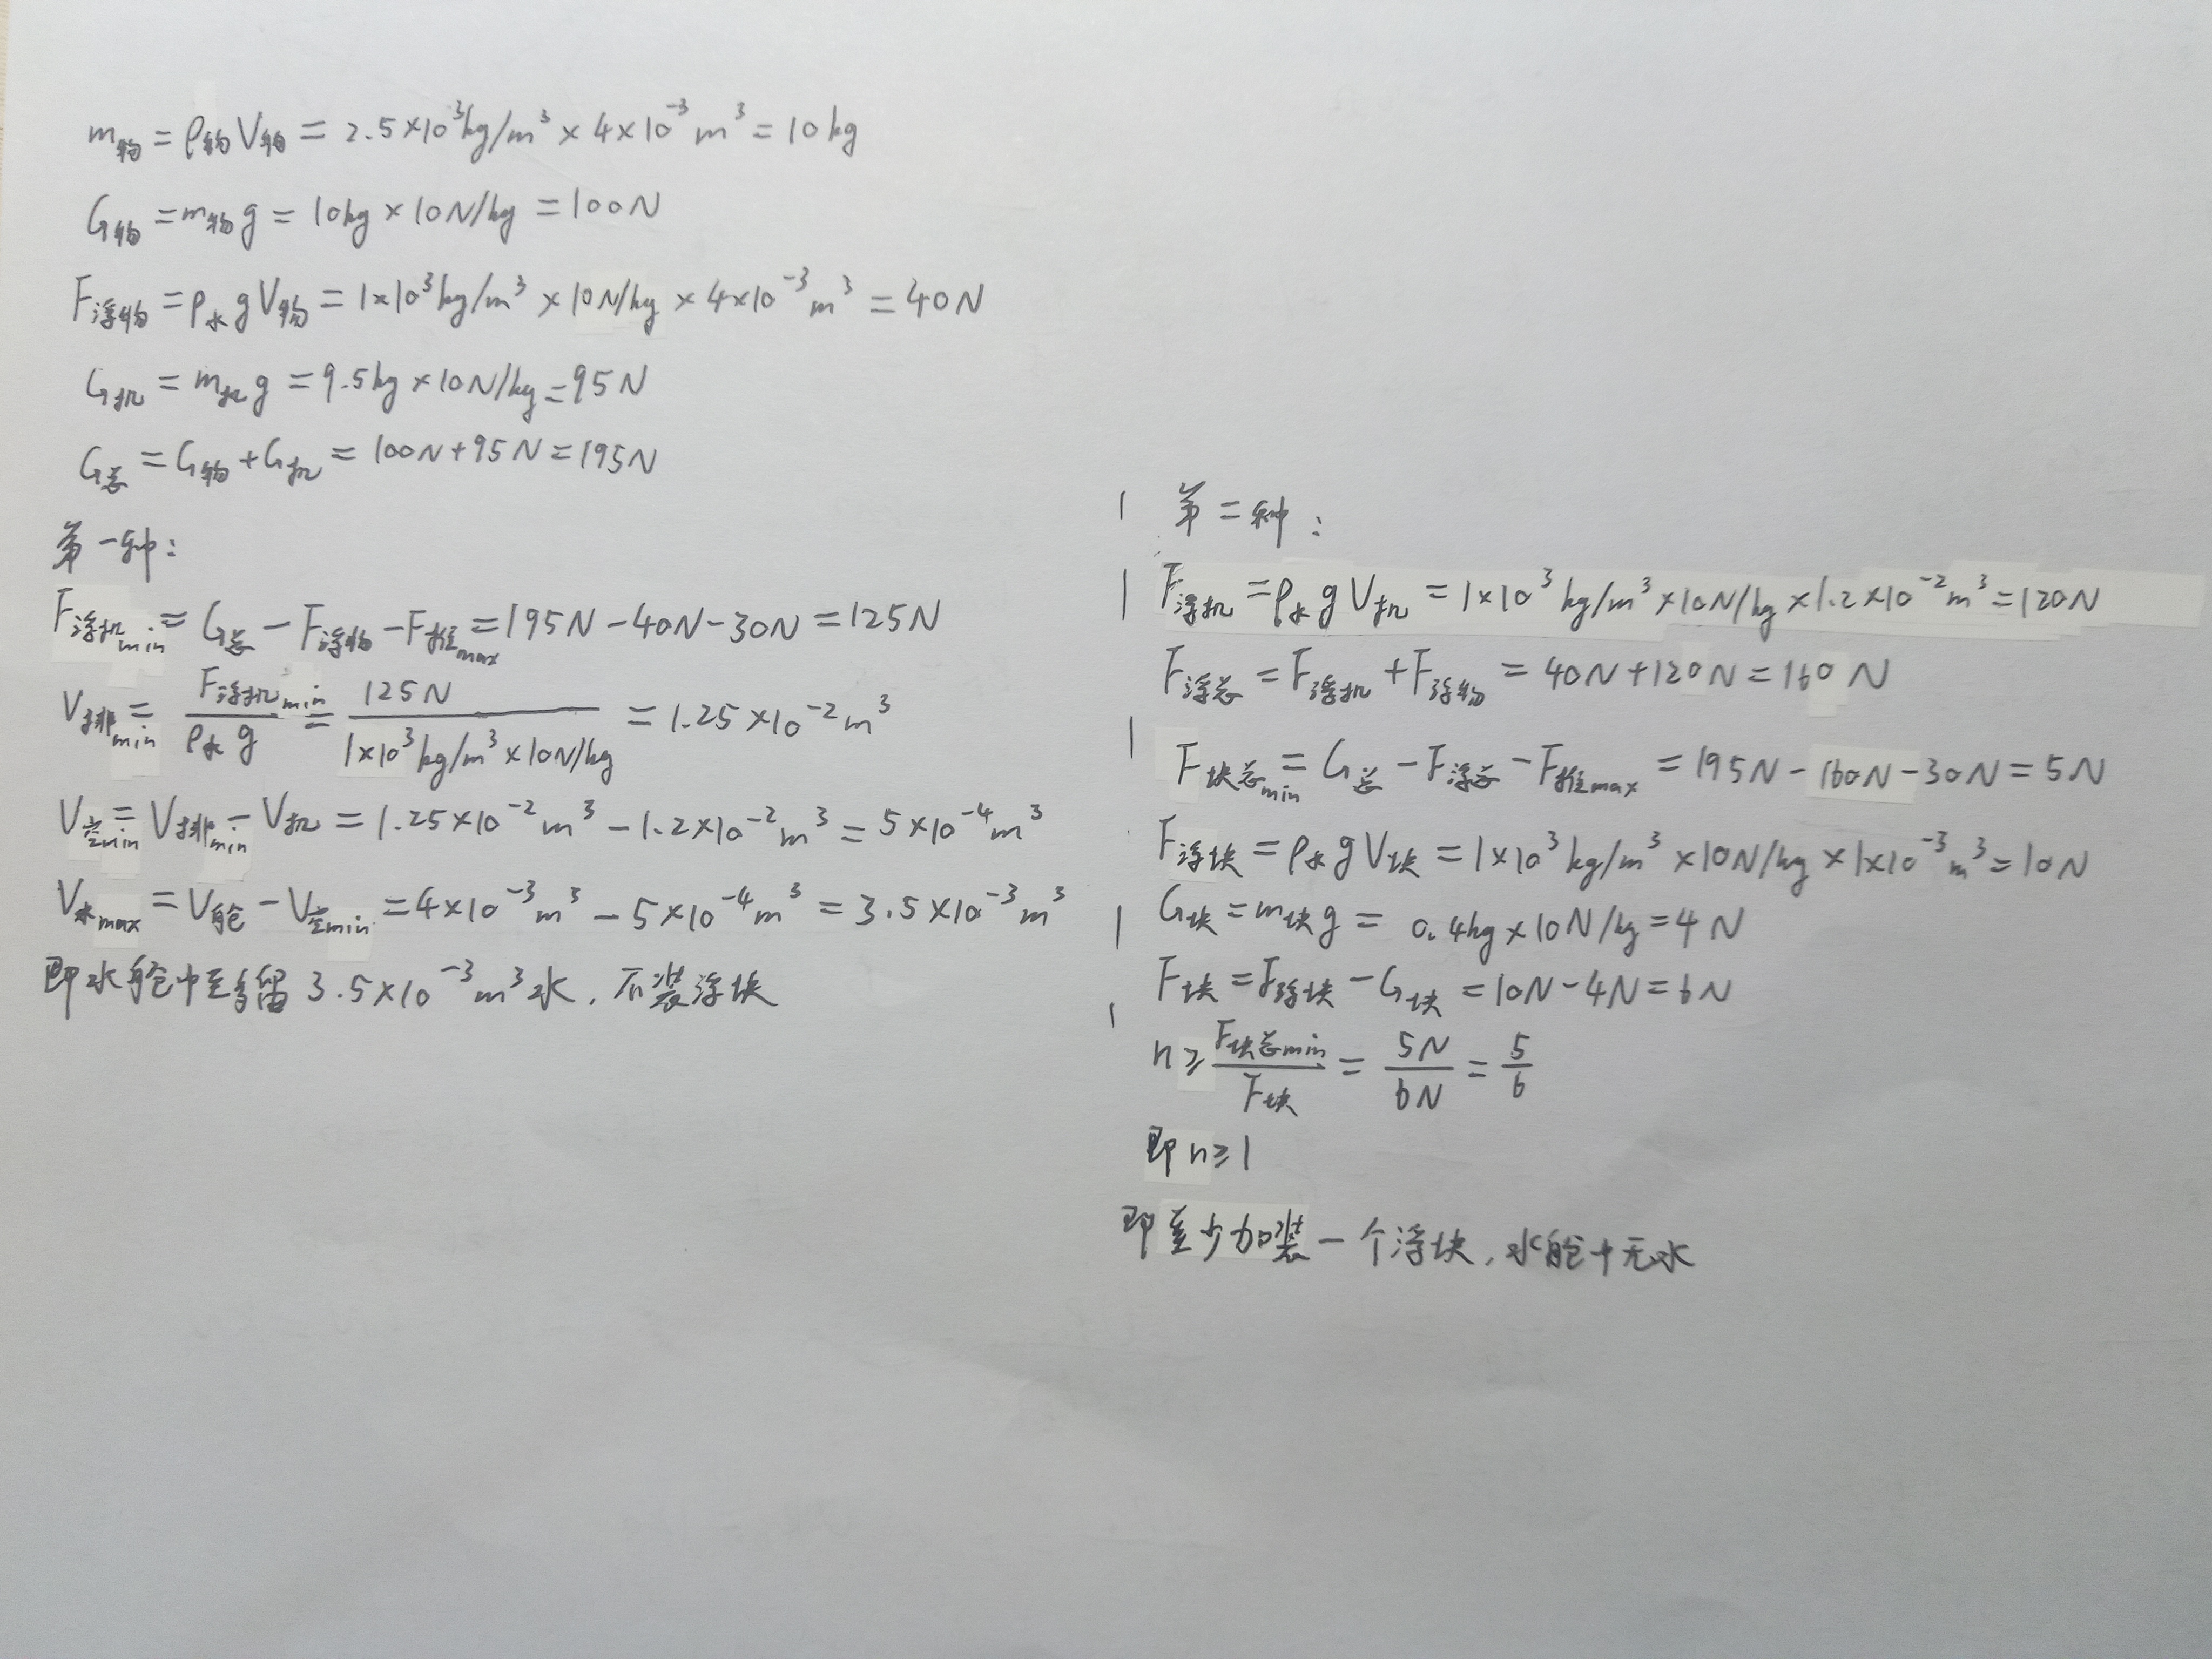 m物 = ρ物V物 = 2.5×10³kg/m³ × 4×10⁻³m³ = 10kg
G物 = m物g = 10kg × 10N/kg = 100N
F浮物 = ρ水gV物 = 1×10³kg/m³ × 10N/kg × 4×10⁻³m³ = 40N
G机 = m机g = 9.5kg×10N/kg = 95N
G总 = G物+G机 = 100N+95N = 195N
第一种:
F浮机min = G总 - F浮物 - F推max = 195N - 40N - 30N = 125N
V排min = F浮机min/ρ水g = 125N/1×10³kg/m³×10N/kg = 1.25×10⁻²m³
V空min = V排min - V机 = 1.25×10⁻²m³ - 1.2×10⁻²m³ = 5×10⁻⁴m³
V水max = V舱 - V空min = 4×10⁻³m³ - 5×10⁻⁴m³ = 3.5×10⁻³m³
即水舱中至多留3.5×10⁻³m³水,不装浮块
第二种:
F浮机 = ρ水gV机 = 1×10³kg/m³×10N/kg×1.2×10⁻²m³ = 120N
F浮总 = F浮机 + F浮物 = 40N+120N = 160N
F块总min = G总 - F浮总 - F推max = 195N - 160N - 30N = 5N
F浮块 = ρ水gV块 = 1×10³kg/m³×10N/kg×1×10⁻³m³ = 10N
G块 = m块g = 0.4kg×10N/kg = 4N
F块 = F浮块 - G块 = 10N - 4N = 6N
n ≥ F块总min/F块 = 5N/6N = 5/6
即n≥1
即至少加装一个浮块,水舱中无水